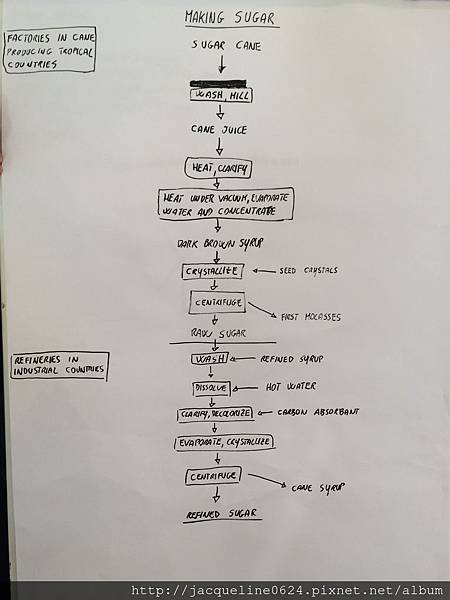 MAKING SUGAR
FACTORIES IN CANE
PRODUCING TROPICAL
COUNTRIES
SUGAR CANE
WASH, MILL
CANE JUICE
HEAT, CLARIFY
HEAT UNDER VACUUM, EVAPORATE
WATER AND CONCENTRATE
DARK BROWN SYRUP
CRYSTALLIZE
SEED CRYSTALS
CENTRIFUGE
FIRST MOLASSES
RAW SUGAR
REFINERIES IN
INDUSTRIAL COUNTRIES
WASH
REFINED SYRUP
DISSOLVE
HOT WATER
CLARIFY, DECOLORIZE
CARBON ABSORBANT
EVAPORATE, CRYSTALLIZE
CENTRIFUGE
CANE SYRUP
REFINED SUGAR
http://jacqueline0624.pixnet.net/album